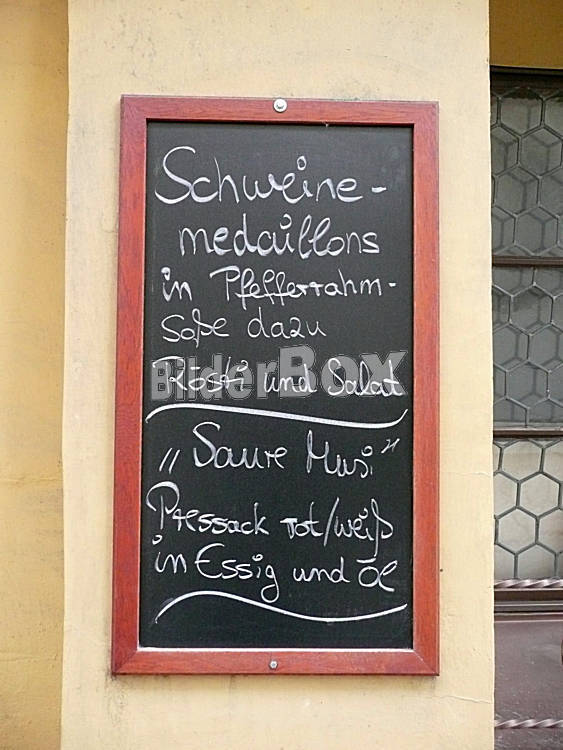 Schweine-
medaillons
in Pfefferrahm-
soße dazu
Rösti und Salat
BilderBox
„Saure Musi"
Pressack rot/weiß
in Essig und Öl